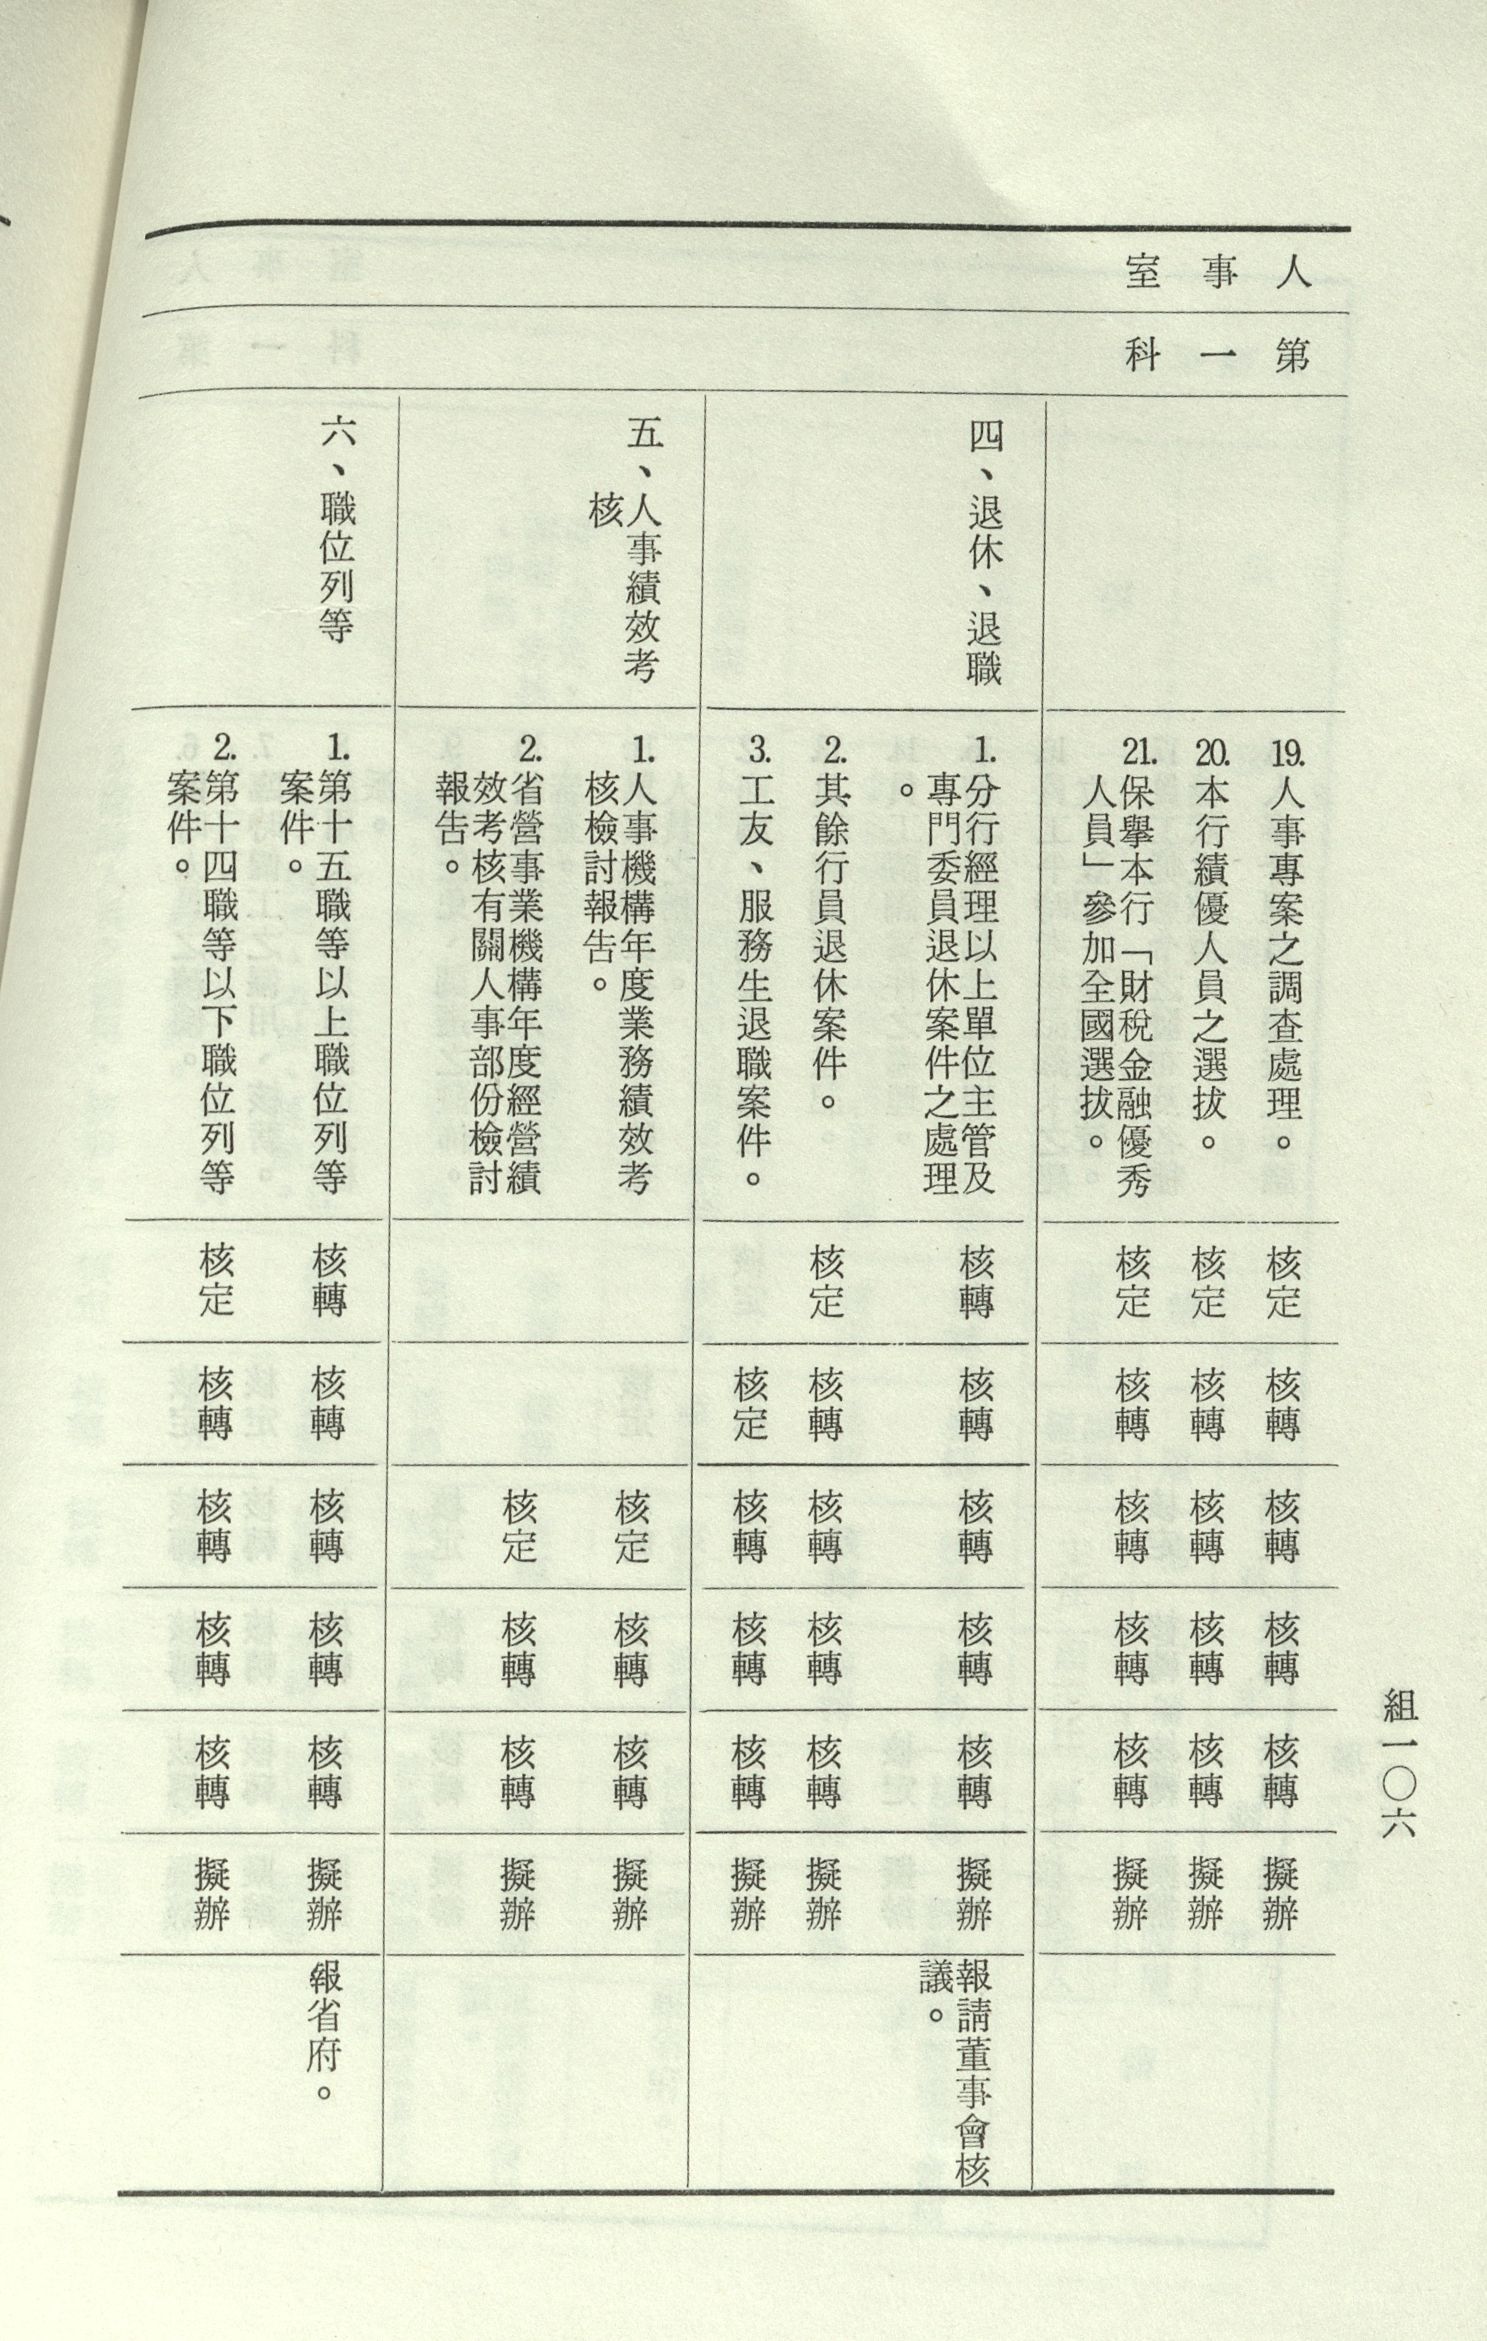 組一〇六
人事室
第一科
19.人事專案之調查處理。
核定
核轉
核轉
核轉
核轉
擬辦
20.本行績優人員之選拔。
核定
核轉
核轉
核轉
核轉
擬辦
21.保舉本行「財稅金融優秀
人員」參加全國選拔。
核定
核轉
核轉
核轉
核轉
擬辦
四、退休、退職
1.分行經理以上單位主管及
專門委員退休案件之處理
。
核轉
核轉
核轉
核轉
核轉
擬辦
報請董事會核
議。
2.其餘行員退休案件。
核定
核轉
核轉
核轉
核轉
擬辦
3.工友、服務生退職案件。
核定
核轉
核轉
核轉
擬辦
五、人事績效考
核
1.人事機構年度業務績效考
核檢討報告。
核定
核轉
核轉
擬辦
2.省營事業機構年度經營績
效考核有關人事部份檢討
報告。
核定
核轉
核轉
擬辦
六、職位列等
1.第十五職等以上職位列等
案件。
核轉
核轉
核轉
核轉
核轉
擬辦
報省府。
2.第十四職等以下職位列等
案件。
核定
核轉
核轉
核轉
核轉
擬辦